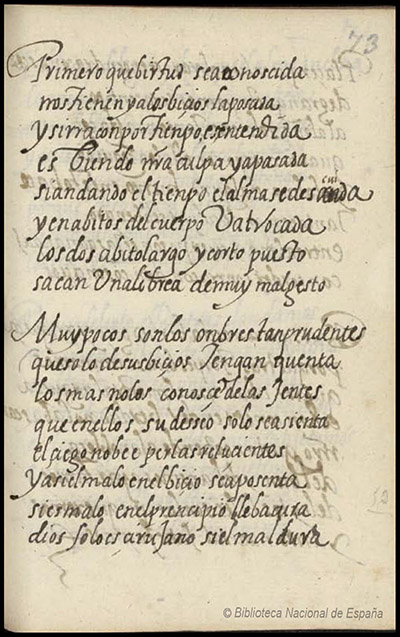 73
Primero que birtud sea conoscida
nos tienen ya los bicios la posada
y si rraçon por tienpo es entendida
es biendo nra culpa ya pasada
si andando el tienpo el alma se desanda
y en abitos de cuerpo va trocada
los dos abito largo y corto puesto
sacan una librea de muy mal gesto
Muy pocos son los onbres tan prudentes
que solo de sus bicios tengan quenta
los mas no los conosçe de las jentes
que en ellos su desseo solo se asienta
el çiego no bee perlas relucientes
y asi el malo en el bicio se aposenta
si es malo en el prencipio lleba cura
dios solo es çirujano si el mal dura
© Biblioteca Nacional de España